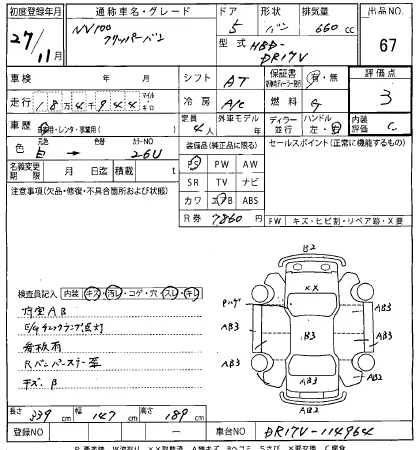 初度登録年月 通称車名・グレード ドア 形状 排気量 出品NO.
27/11月 NV100 クリッパーバン 5 バン 660cc 67
型式 HBD-DR17V
車検 年 月 シフト AT 保証書 有・無 評価点
走行 18万4千944 マイル キロ 冷房 A/C 燃料 G 3
車歴 自家用・レンタ・事業用( ) 定員 4人 外車モデル 年 ディラー・並行 ハンドル 左・右 内装評価 C
色 元色 白 → 色替 カラーNO 26U 装備品(純正品に限る) セールスポイント(正常に機能するもの)
名義変更期限 月 日迄 積載 t PS PW AW
注意事項(欠品・修復・不具合箇所および状態) SR TV ナビ
カワ エアB ABS
R券 7860円 FW キズ・ヒビ割・リペア跡・X要
B2
XX
検査員記入 内装 キズ・汚レ・コゲ・穴・スレ・キレ
荷室AB
E/gチェックランプ点灯
看板有
Rバンパーステー歪
キズ・B
AB3 AB3 B3 AB3 AB3
AB3 AB3 AB2
AB2
長さ 339cm 幅 147cm 高さ 189cm
登録NO 車台NO DR17V-114964